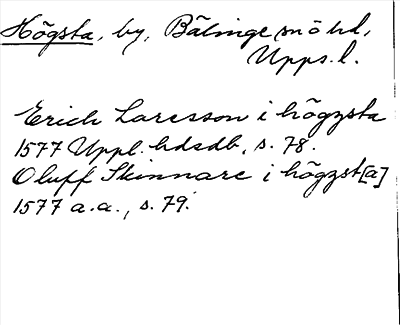 Högsta, by, Bälinge sn ö hd,
Upps. l.
Erich Larsson i högzsta
1577 Uppl. hdsdb, s. 78.
Oluff Skinnare i högzst[a]
1577 a.a., s. 79.